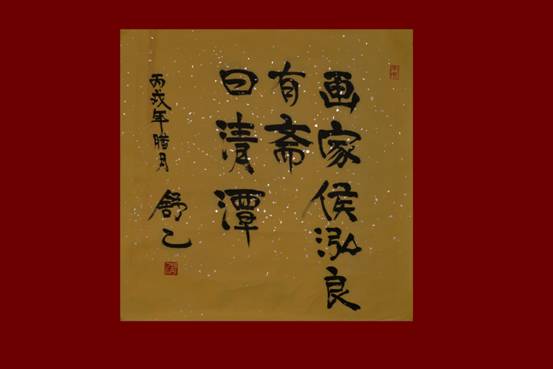 画家侯泓良
有斋
曰清潭
丙戌年腊月
舒乙